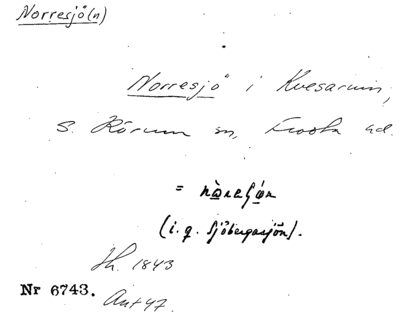 Norresjö(n)
Norresjö i Kvesarum,
S. Rörum sn, Frosta hd.
= nὰrεʃǿn
(i.q. Sjöbergasjön).
Jh. 1843
Nr 6743. Ant 47.